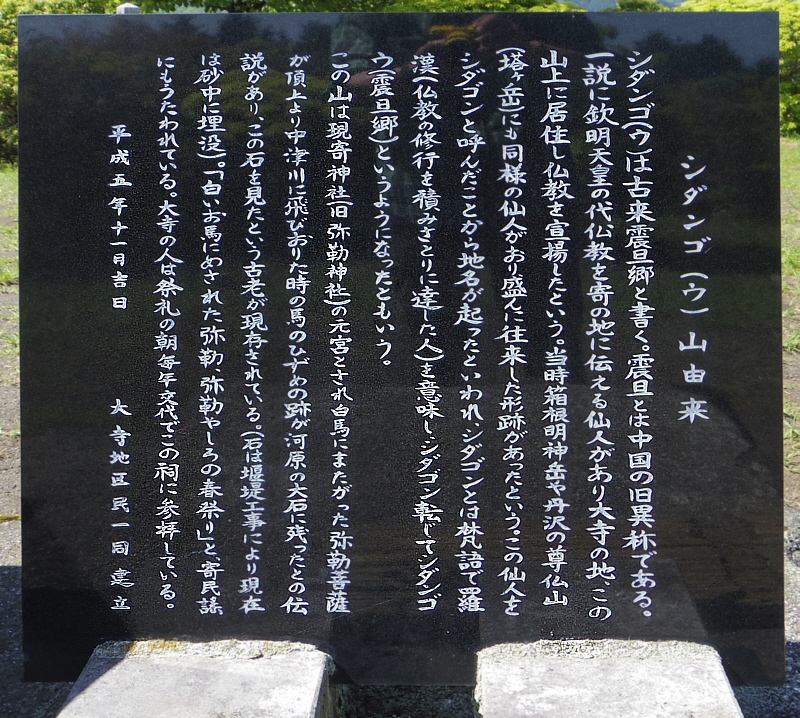 シダンゴ(ウ)山由来
シダンゴ(ウ)は古来震旦郷と書く。震旦とは中国の旧異称である。
一説に欽明天皇の代仏教を寄の地に伝える仙人があり大寺の地、この
山上に居住し仏教を宣揚したという。当時箱根明神岳や丹沢の尊仏山
(塔ヶ岳)にも同様の仙人がおり盛んに往来した形跡があったという。この仙人を
シダゴンと呼んだことから地名が起ったといわれ、シダゴンとは梵語で羅
漢(仏教の修行を積みさとりに達した人)を意味し、シダゴン転じてシダンゴ
ウ(震旦郷)というようになったともいう。
この山は現寄神社(旧弥勒神社)の元宮とされ白馬にまたがった弥勒菩薩
が頂上より中津川に飛びおりた時の馬のひずめの跡が河原の大石に残ったとの伝
説があり、この石を見たという古老が現存されている。(石は堰堤工事により現在
は砂中に埋没)。「白いお馬にめされた弥勒、弥勒やしろの春祭り」と、寄民謡
にもうたわれている。大寺の人は祭礼の朝毎年交代でこの祠に参拝している。
平成五年十一月吉日 大寺地区民一同建立